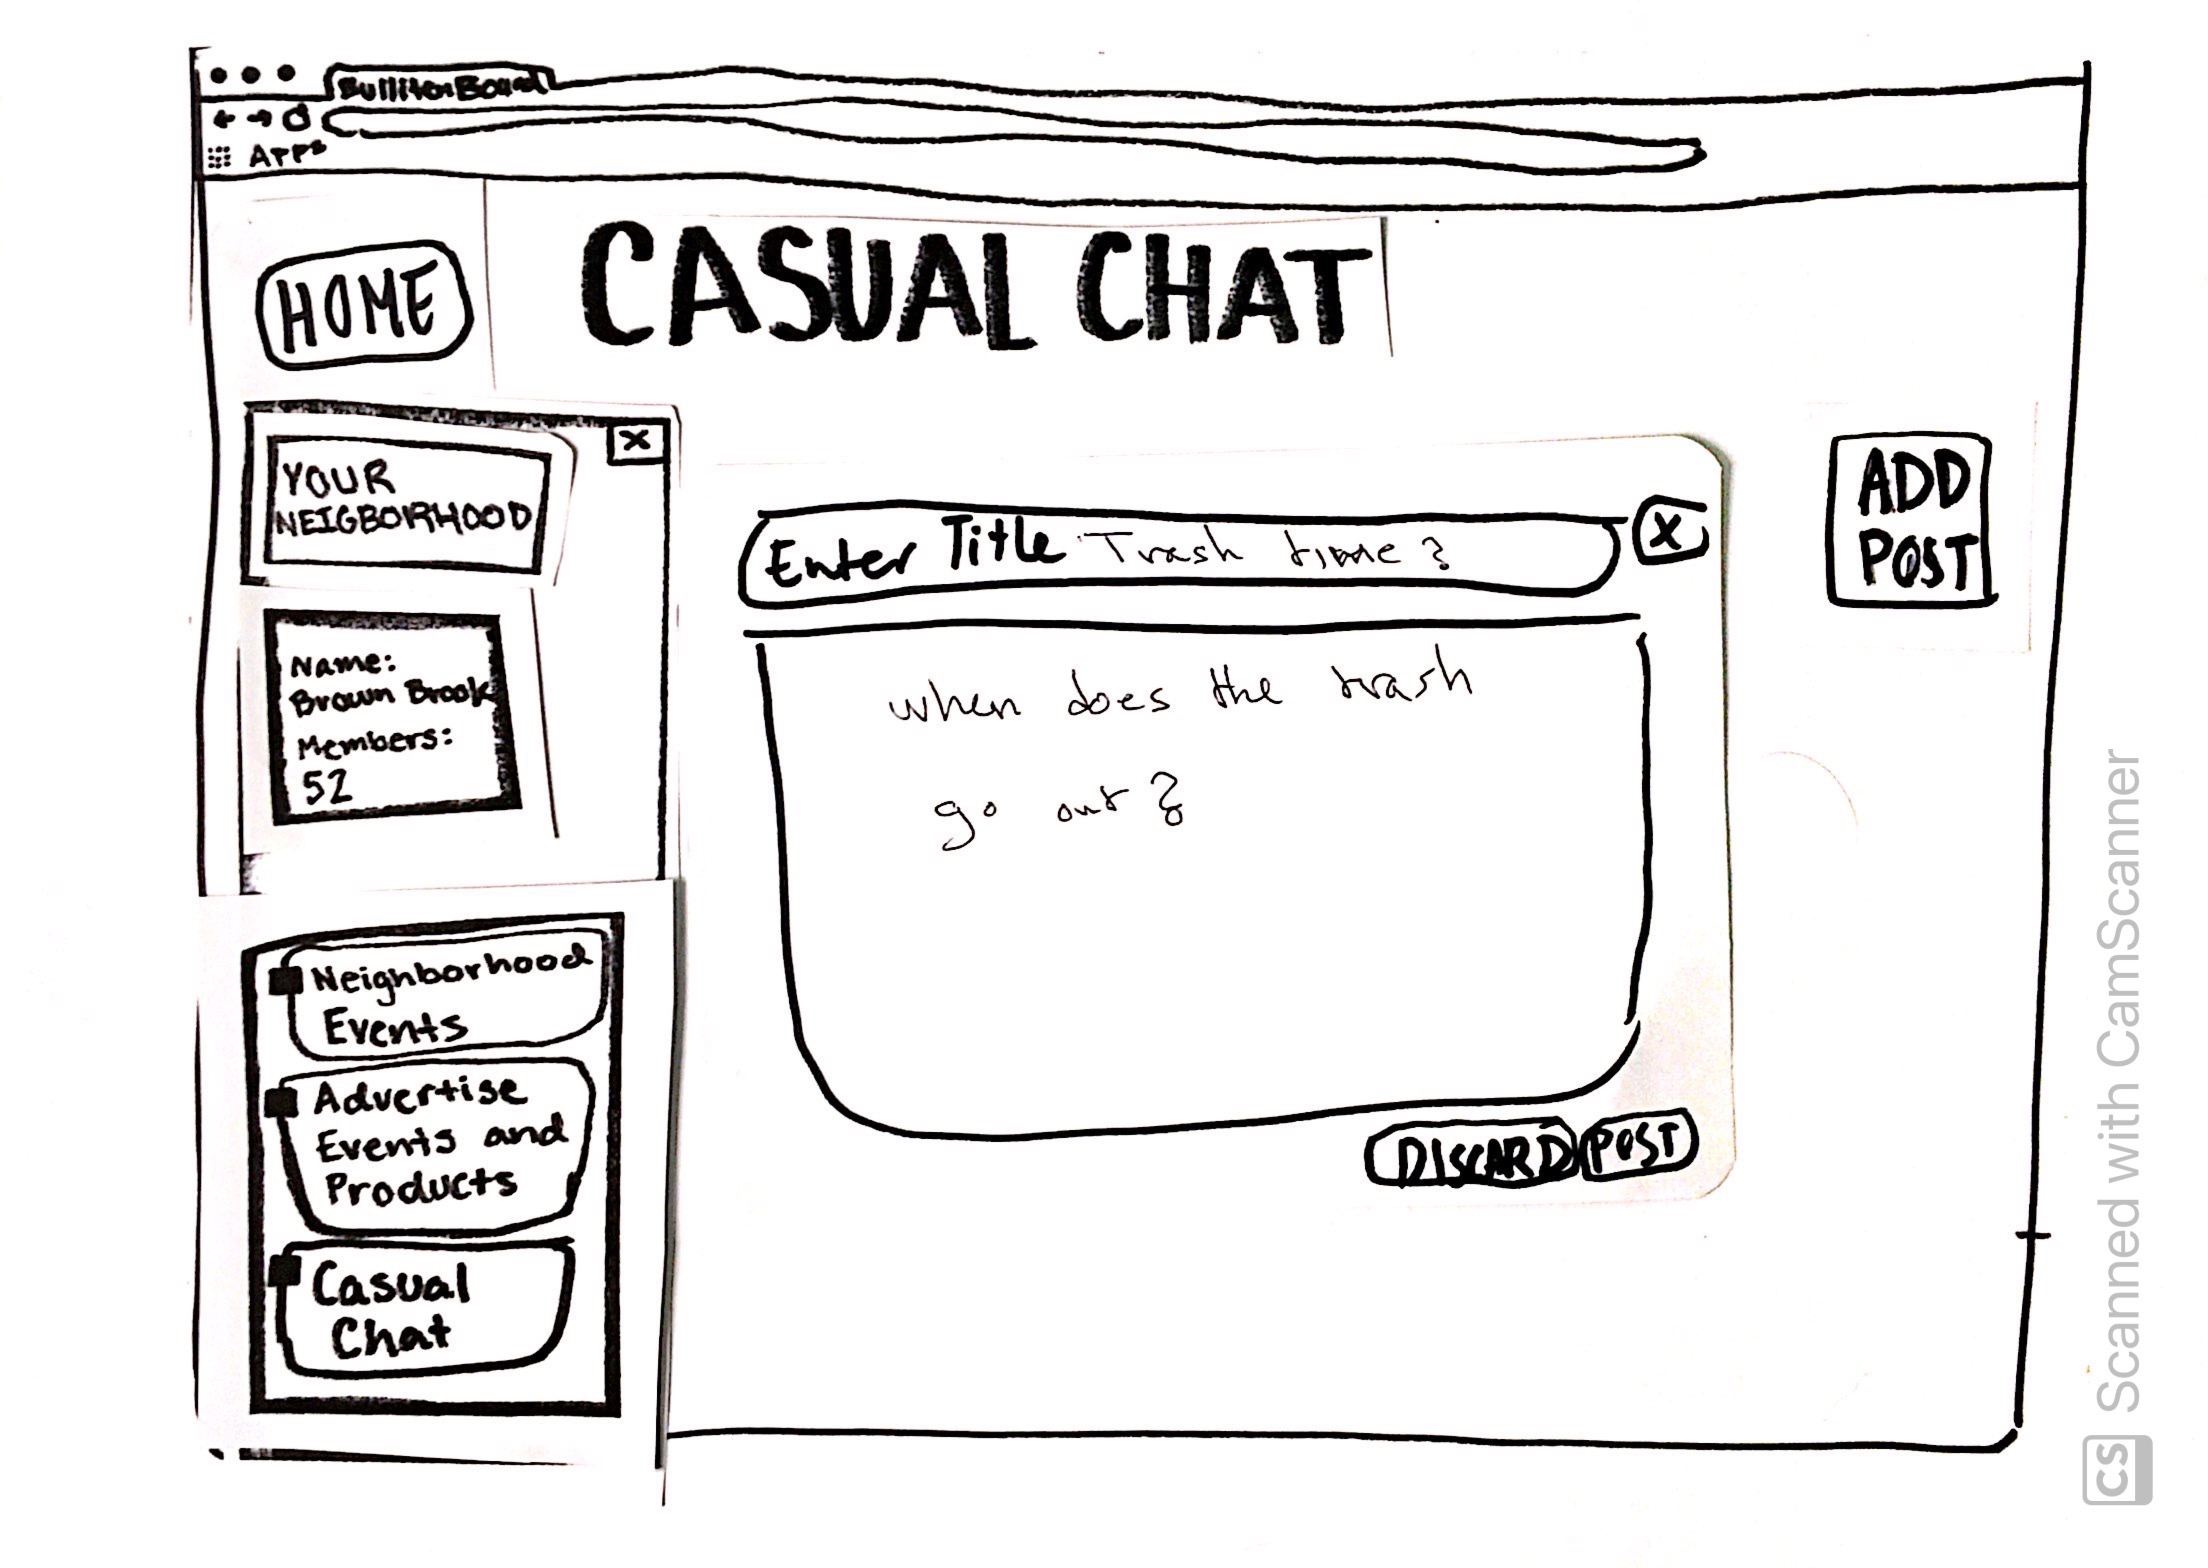 BullitenBoard
Apps
HOME
CASUAL CHAT
X
YOUR
NEIGBORHOOD
Name:
Brown Brook
Members:
52
Neighborhood
Events
Advertise
Events and
Products
Casual
Chat
Enter Title Trash time?
X
when does the trash
go out?
DISCARD POST
ADD
POST
CS Scanned with CamScanner